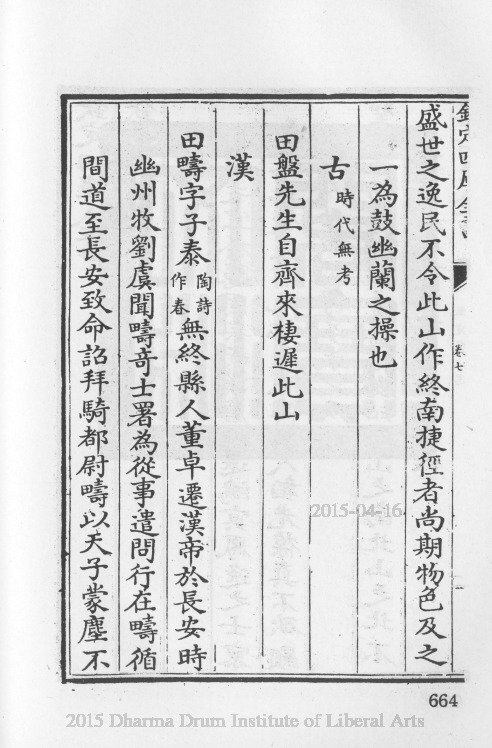 欽定四庫全書
卷七
盛世之逸民不令此山作終南捷徑者尚期物色及之
一為鼓幽蘭之操也
古時代無考
田盤先生自齊來棲遲此山
漢
田疇字子泰陶詩作春無終縣人董卓遷漢帝於長安時
幽州牧劉虞聞疇奇士署為從事遣問行在疇循
間道至長安致命詔拜騎都尉疇以天子蒙塵不
2015-04-16
664
2015 Dharma Drum Institute of Liberal Arts